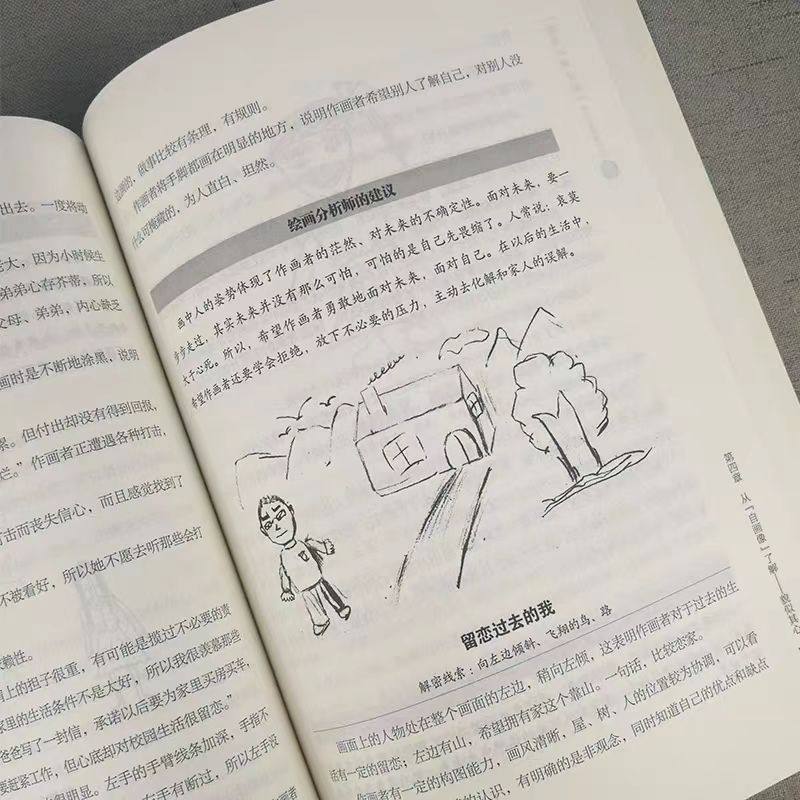 出去。一度将动
老大，因为小时候生
弟弟心存芥蒂，所以
父母、弟弟，内心缺乏
画时是不断地涂黑，说明
累。但付出却没有得到回报，
烂。”作者正遭遇各种打击，
打击而丧失信心，而且感觉找到了
不被看好，所以她不愿去听那些会打
赖性。
上的担子很重，有可能是揽过不必要的责
家里的生活条件不是太好，所以我很羡慕那些
爸爸写了一封信，承诺以后要为家里买房买车，
要赶紧工作，但心底却对校园生活很留恋。”
很明显。左手的手臂线条加深，手指不
左手有断过，所以左手没
的，做事比较有条理，有规则。
作画者将手脚都画在明显的地方，说明作画者希望别人了解自己，对别人没
什么可掩藏的，为人直白、坦然。
绘画分析师的建议
画中人的姿势体现了作画者的茫然、对未来的不确定性。面对未来，要一
步步走过，其实未来并没有那么可怕，可怕的是自己先畏缩了。人常说：哀莫
大于心死。所以，希望作画者勇敢地面对未来，面对自己。在以后的生活中，
希望作画者还要学会拒绝，放下不必要的压力，主动去化解和家人的误解。
留恋过去的我
解密线索：向左边倾斜、飞翔的鸟、路
画面上的人物处在整个画面的左边，稍向左倾，这表明作画者对于过去的生
活有一定的留恋；左边有山，希望拥有家这个靠山。一句话，比较恋家。
作画者有一定的构图能力，画风清晰，屋、树、人的位置较为协调，可以看
的认识，有明确的是非观念，同时知道自己的优点和缺点
第四章 从“自画像”了解——貌似其心